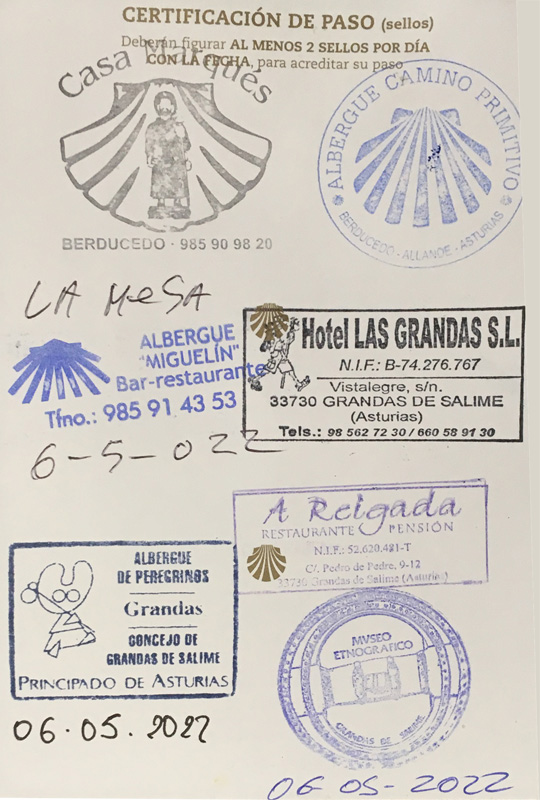 CERTIFICACIÓN DE PASO (sellos)
Deberán figurar AL MENOS 2 SELLOS POR DÍA
CON LA FECHA, para acreditar su paso
Casa Marqués
BERDUCEDO · 985 90 98 20
ALBERGUE CAMINO PRIMITIVO
BERDUCEDO - ALLANDE - ASTURIAS
LA MeSA
ALBERGUE
"MIGUELÍN"
Bar-restaurante
Tfno.: 985 91 43 53
6-5-022
Hotel LAS GRANDAS S.L.
N.I.F.: B-74.276.767
Vistalegre, s/n.
33730 GRANDAS DE SALIME
(Asturias)
Tels.: 98 562 72 30 / 660 58 91 30
A Reigada
RESTAURANTE PENSIÓN
N.I.F.: 52.620.481-T
C/. Pedro de Pedre, 9-12
33730 Grandas de Salime (Asturias)
ALBERGUE
DE PEREGRINOS
Grandas
CONCEJO DE
GRANDAS DE SALIME
PRINCIPADO DE ASTURIAS
06.05.2022
MVSEO
ETNOGRAFICO
GRANDAS DE SALIME
06 05-2022